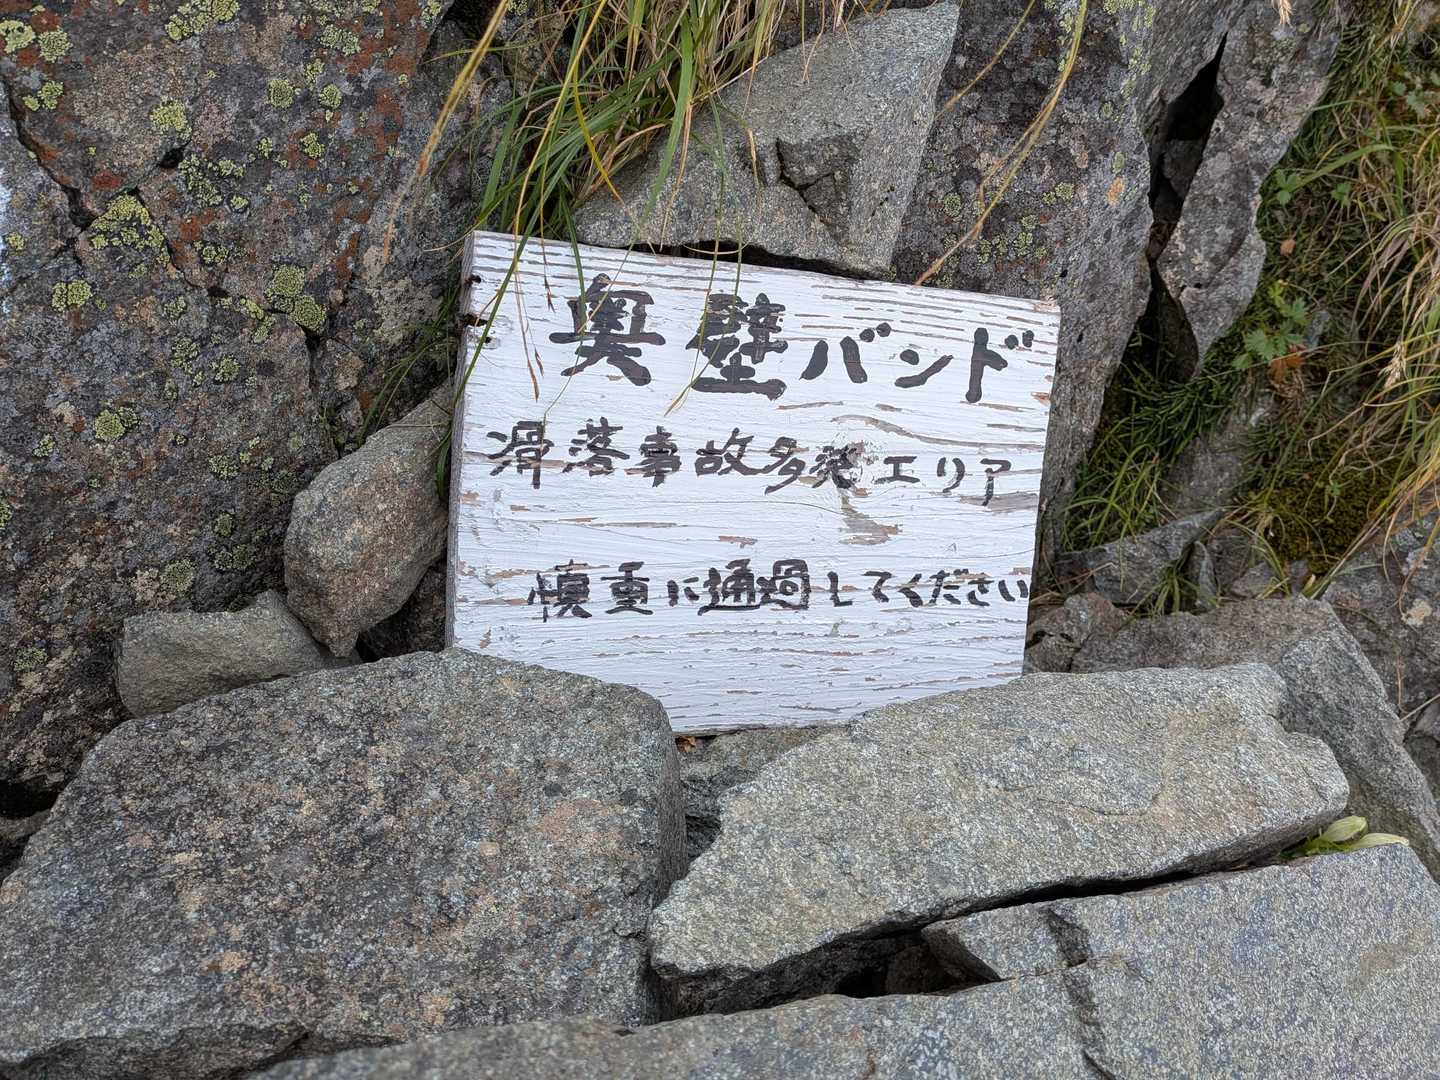 奥壁バンド
滑落事故多発エリア
慎重に通過してください